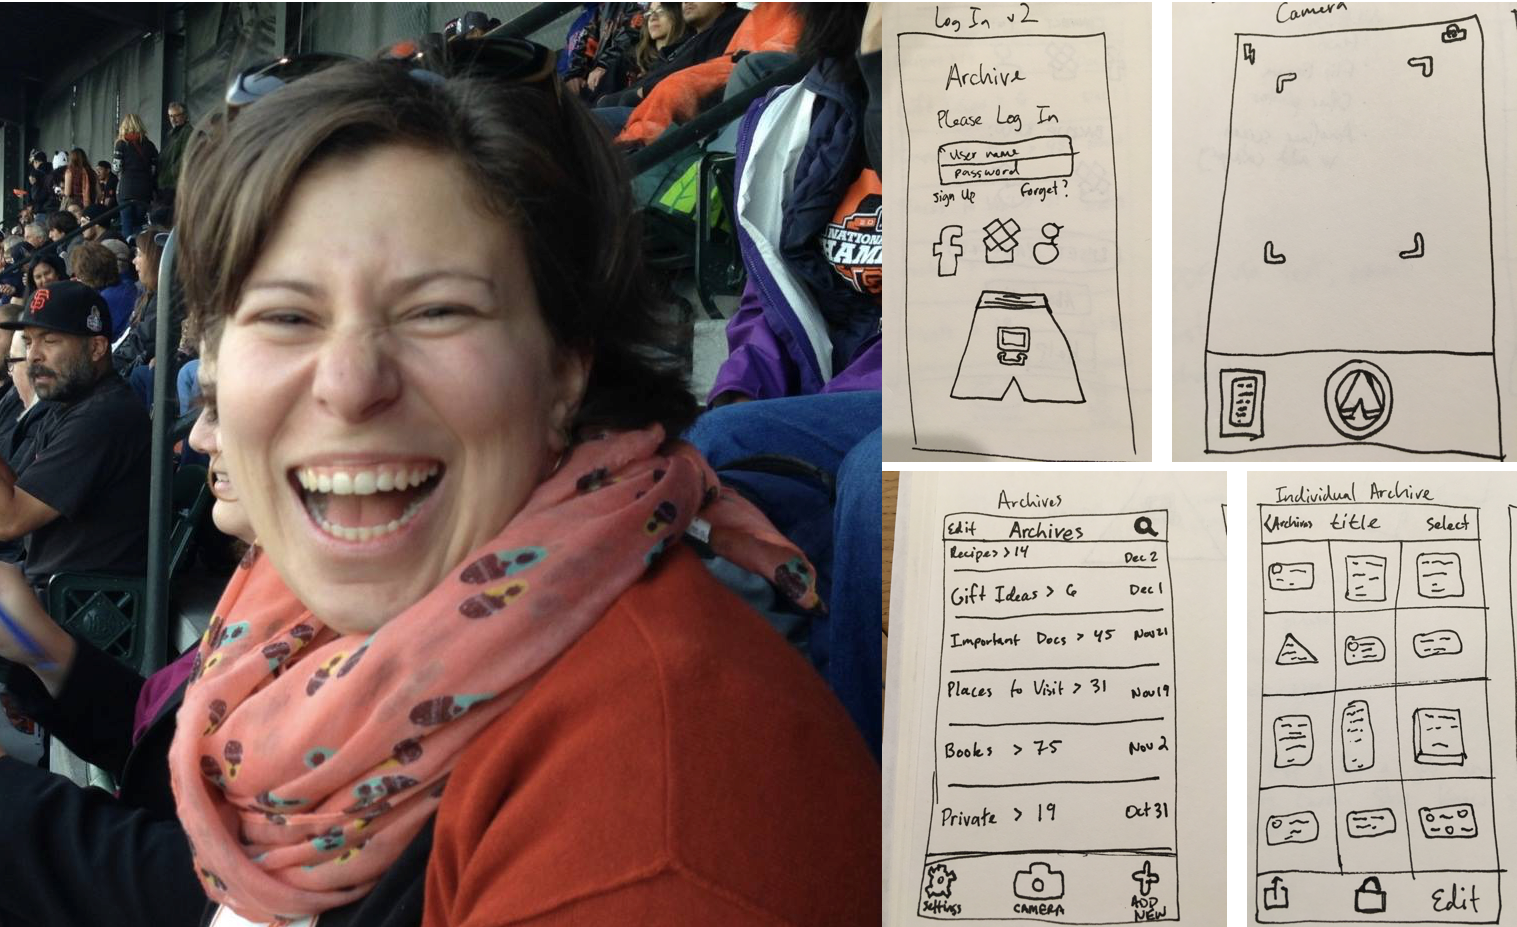 NATIONAL
Log In v2
Archive
Please Log In
User name
password
Sign Up
Forget?
Camera
Archives
Edit
Archives
Recipes > 14
Dec 2
Gift Ideas > 6
Dec 1
Important Docs > 45
Nov 21
Places to Visit > 31
Nov 19
Books > 75
Nov 2
Private > 19
Oct 31
Settings
CAMERA
ADD
NEW
Individual Archive
<Archives
title
Select
Edit